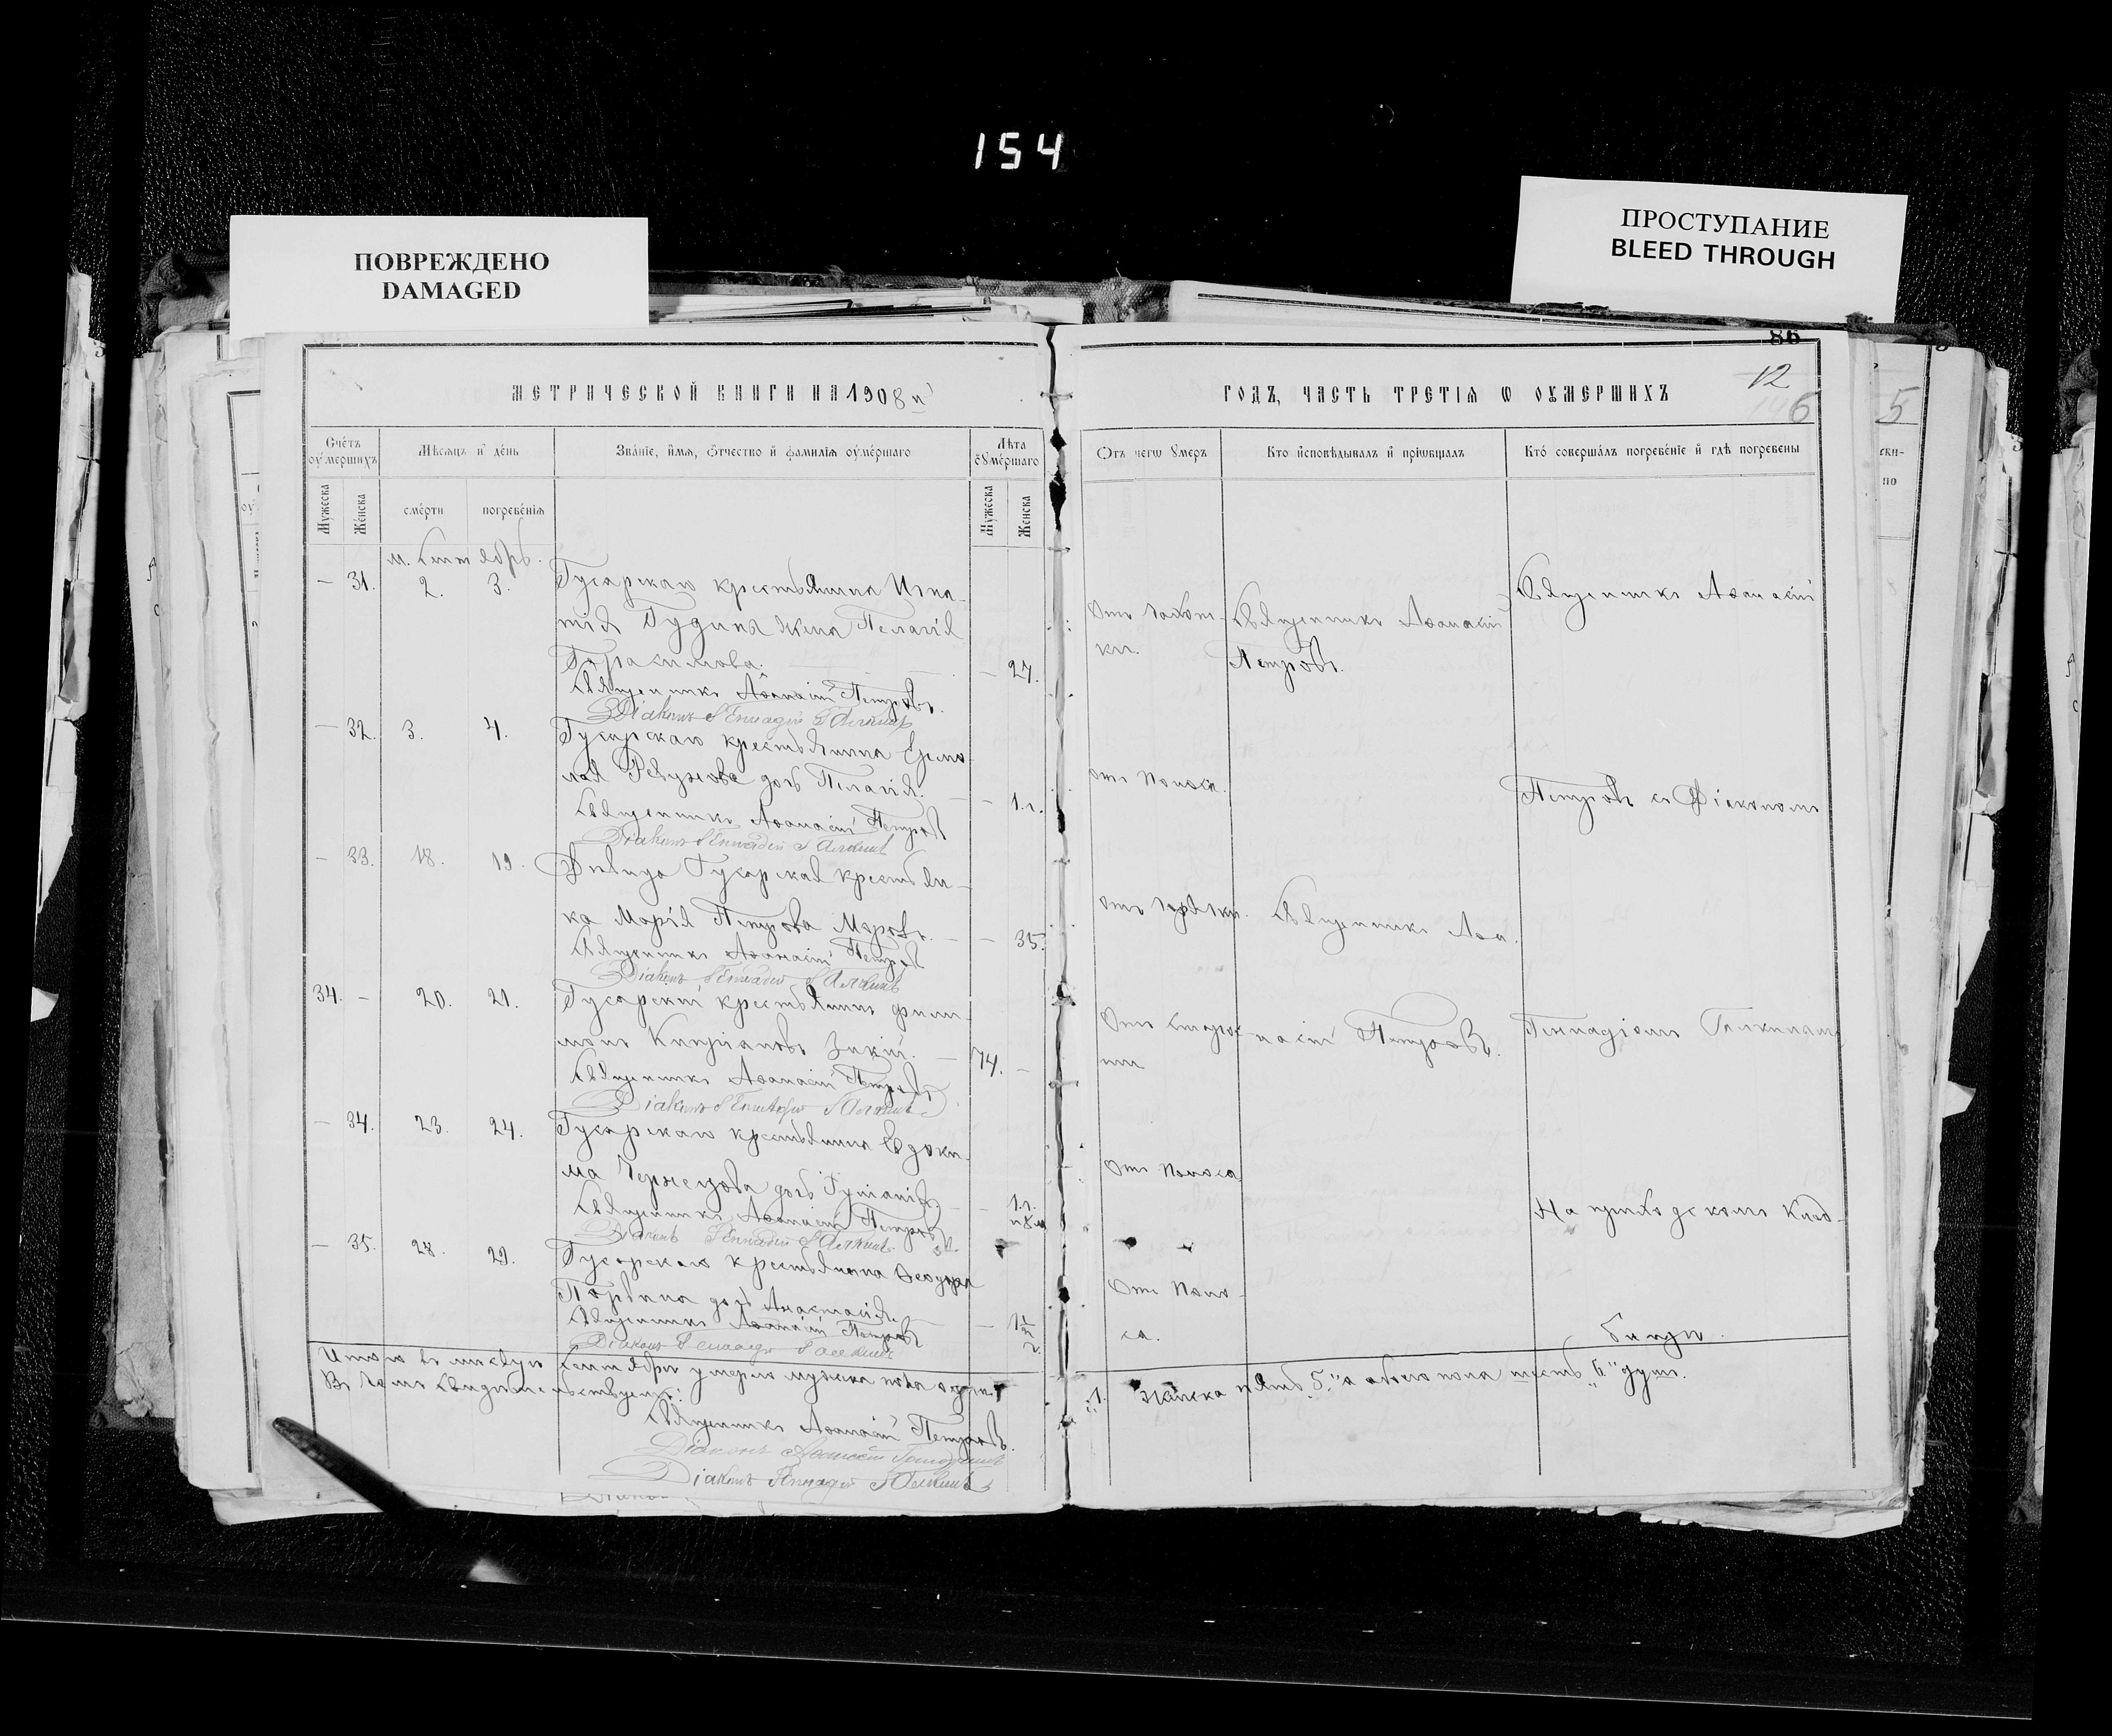 154
ПОВРЕЖДЕНО
DAMAGED
ПРОСТУПАНИЕ
BLEED THROUGH
86
12
6
5
МЕТРИЧЕСКОЙ КНИГИ НА 1908 й
ГОДЪ, ЧАСТЬ ТРЕТІѦ Ѡ ОУМЕРШИХЪ
Счетъ оумершихъ
Мѣсяцъ и день
Званіе, имя, Отчество и фамиліѧ оумершаго
Лѣта Оумершаго
Отъ чегѡ Умеръ
Кто исповѣдывалъ и пріѡбщалъ
Кто совершалъ погребеніе и гдѣ погребены
Мужеска
Женска
смерти
погребеніѧ
Мужеска
Женска
м. Сентябрь.
— 31. 2. 3. Гусарскаго крестьянина Игна-
тія Гудина жена Пелагія
Герасимова. — 27.
Священникъ Аѳанасій Петровъ.
Діаконъ Геннадій Галкинъ
Отъ чахот-
ки.
Священникъ Аѳанасій
Петровъ.
Священникъ Аѳанасій
— 32. 3. 4. Гусарскаго крестьянина Ермо-
лая дочь Пелагія. — 1 г.
Священникъ Аѳанасій Петровъ
Діаконъ Геннадій Галкинъ
отъ поноса.
Петровъ съ Діакономъ
— 33. 18. 19. Дѣвица Гусарская крестьян-
ка Марія Петрова — 35.
Священникъ Аѳанасій Петровъ
Діаконъ Геннадій Галкинъ
отъ горячки.
Священникъ Аѳа-
34. — 20. 21. Гусарскій крестьянинъ Фили-
монъ Кипріановъ 74. —
Священникъ Аѳанасій Петровъ
Діаконъ Геннадій Галкинъ
Отъ старос-
ти
насій Петровъ.
Геннадіемъ Галкинымъ
— 34. 23. 24. Гусарскаго крестьянина Евдоки-
ма Чернецова дочь — 1 г. и 8 м
Священникъ Аѳанасій Петровъ
Діаконъ Геннадій Галкинъ
Отъ поноса
На приходскомъ клад-
— 35. 28. 29. Гусарскаго крестьянина Ѳеодора
дочь Анастасія. — 1½ г.
Священникъ Аѳанасій Петровъ
Діаконъ Геннадій Галкинъ
Отъ поно-
са.
бищѣ.
Итого въ мѣсяцѣ Сентябрѣ умерло мужска пола одинъ „1. женска пять „5." а обоего пола шесть „6" душъ.
Въ чемъ свидѣтельствуемъ:
Священникъ Аѳанасій Петровъ.
Діаконъ
Діаконъ Геннадій Галкинъ